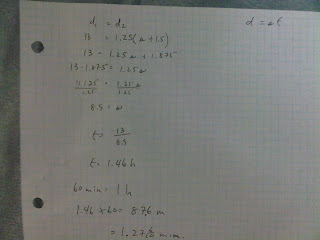 d₁ = d₂
d = st
13 = 1.25(s + 1.5)
13 = 1.25s + 1.875
13 - 1.875 = 1.25s
11.125/1.25 = 1.25s/1.25
8.9 = s
t = 13/8.9
t = 1.46 h
60 min = 1 h
1.46 x 60 = 87.6 m